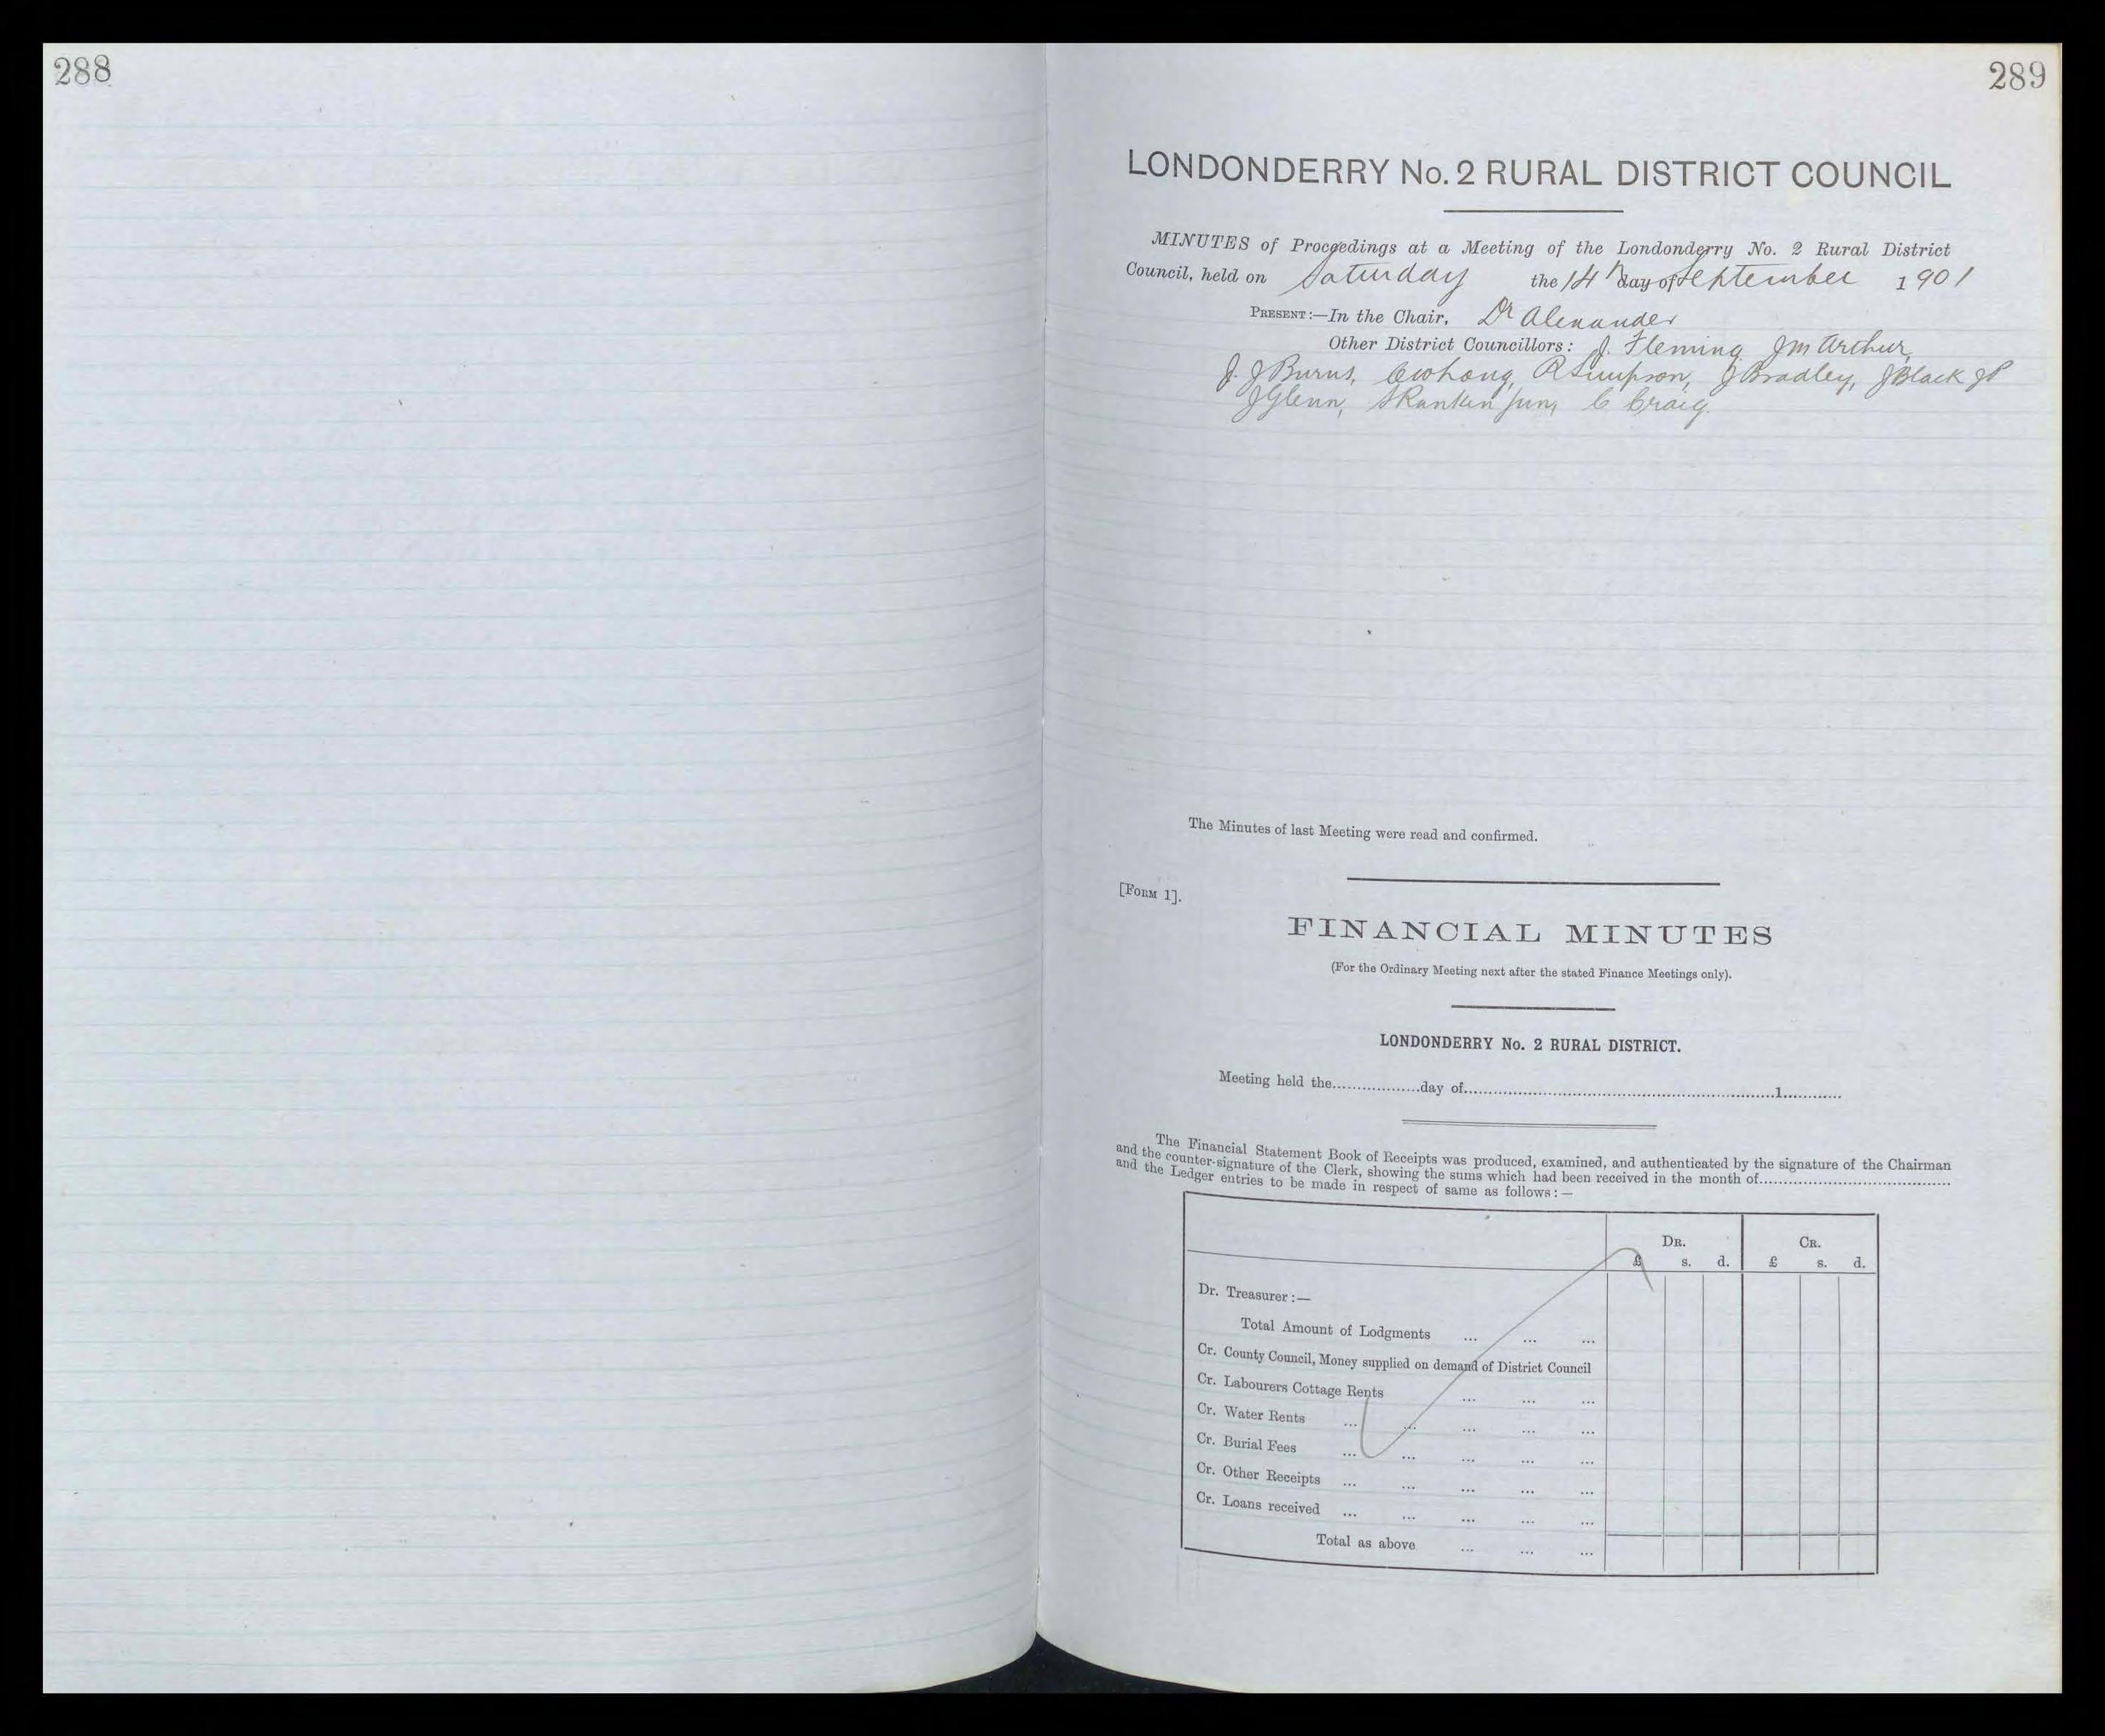 288
289
LONDONDERRY No. 2 RURAL DISTRICT COUNCIL
MINUTES of Proceedings at a Meeting of the Londonderry No. 2 Rural District
Council, held on Saturday the 14th day of September 1901
PRESENT:—In the Chair, Dr Alexander
Other District Councillors: J. Fleming, J McArthur,
J. J Burns, R Simpson, J Bradley, J Black JP
J Glenn, S Rankin Jun, C Craig.
The Minutes of last Meeting were read and confirmed.
[FORM 1].
FINANCIAL MINUTES
(For the Ordinary Meeting next after the stated Finance Meetings only).
LONDONDERRY No. 2 RURAL DISTRICT.
Meeting held the..................day of..................................................................1............
The Financial Statement Book of Receipts was produced, examined, and authenticated by the signature of the Chairman
and the counter-signature of the Clerk, showing the sums which had been received in the month of.......................................
and the Ledger entries to be made in respect of same as follows:—
DR. CR.
£ s. d. £ s. d.
Dr. Treasurer:—
Total Amount of Lodgments ... ... ...
Cr. County Council, Money supplied on demand of District Council
Cr. Labourers Cottage Rents ... ... ...
Cr. Water Rents ... ... ... ... ...
Cr. Burial Fees ... ... ... ... ...
Cr. Other Receipts ... ... ... ... ...
Cr. Loans received ... ... ... ... ...
Total as above ... ... ...